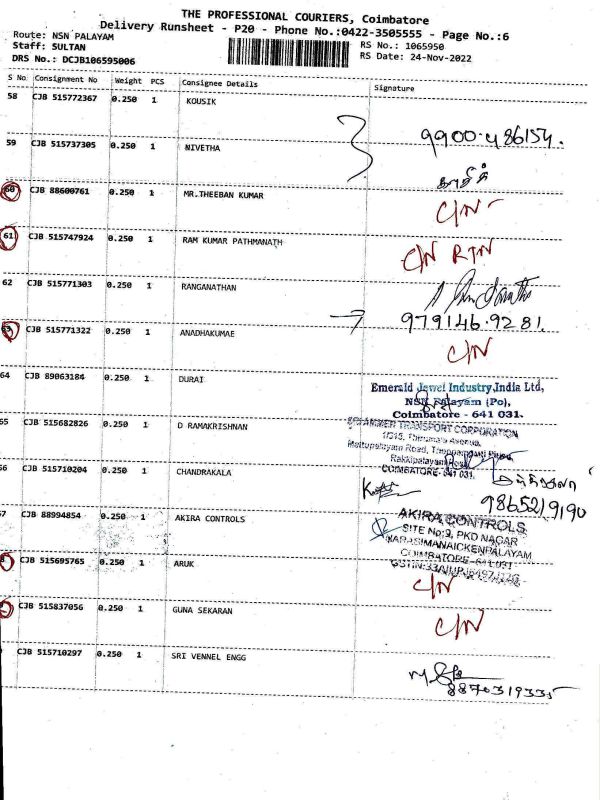 THE PROFESSIONAL COURIERS, Coimbatore
Delivery Runsheet - P20 - Phone No.:0422-3505555 - Page No.:6
Route: NSN PALAYAM
Staff: SULTAN
DRS No.: DCJB106595006
RS No.: 1065950
RS Date: 24-Nov-2022
S No Consignment No Weight PCS Consignee Details Signature
58 CJB 515772367 0.250 1 KOUSIK
9900486154.
59 CJB 515737305 0.250 1 NIVETHA
60 CJB 88600761 0.250 1 MR.THEEBAN KUMAR C/N -
61 CJB 515747924 0.250 1 RAM KUMAR PATHMANATH C/N RTN
62 CJB 515771303 0.250 1 RANGANATHAN
→ 979146.9281.
CJB 515771322 0.250 1 ANADHAKUMAE C/N
64 CJB 89063184 0.250 1 DURAI
Emerald Jewel Industry,India Ltd,
NSN Palayam (Po),
Coimbatore - 641 031.
65 CJB 515682826 0.250 1 D RAMAKRISHNAN
TRANSPORT CORPORATION
Mettupalayam Road,
COIMBATORE- 641 031.
66 CJB 515710204 0.250 1 CHANDRAKALA
9865219190
67 CJB 88994854 0.250 1 AKIRA CONTROLS
AKIRA CONTROLS
SITE No:9, PKD NAGAR
NARASIMANAICKENPALAYAM
COIMBATORE-641 031
CJB 515695765 0.250 1 ARUK C/N
CJB 515837056 0.250 1 GUNA SEKARAN C/N
CJB 515710297 0.250 1 SRI VENNEL ENGG
8870319335